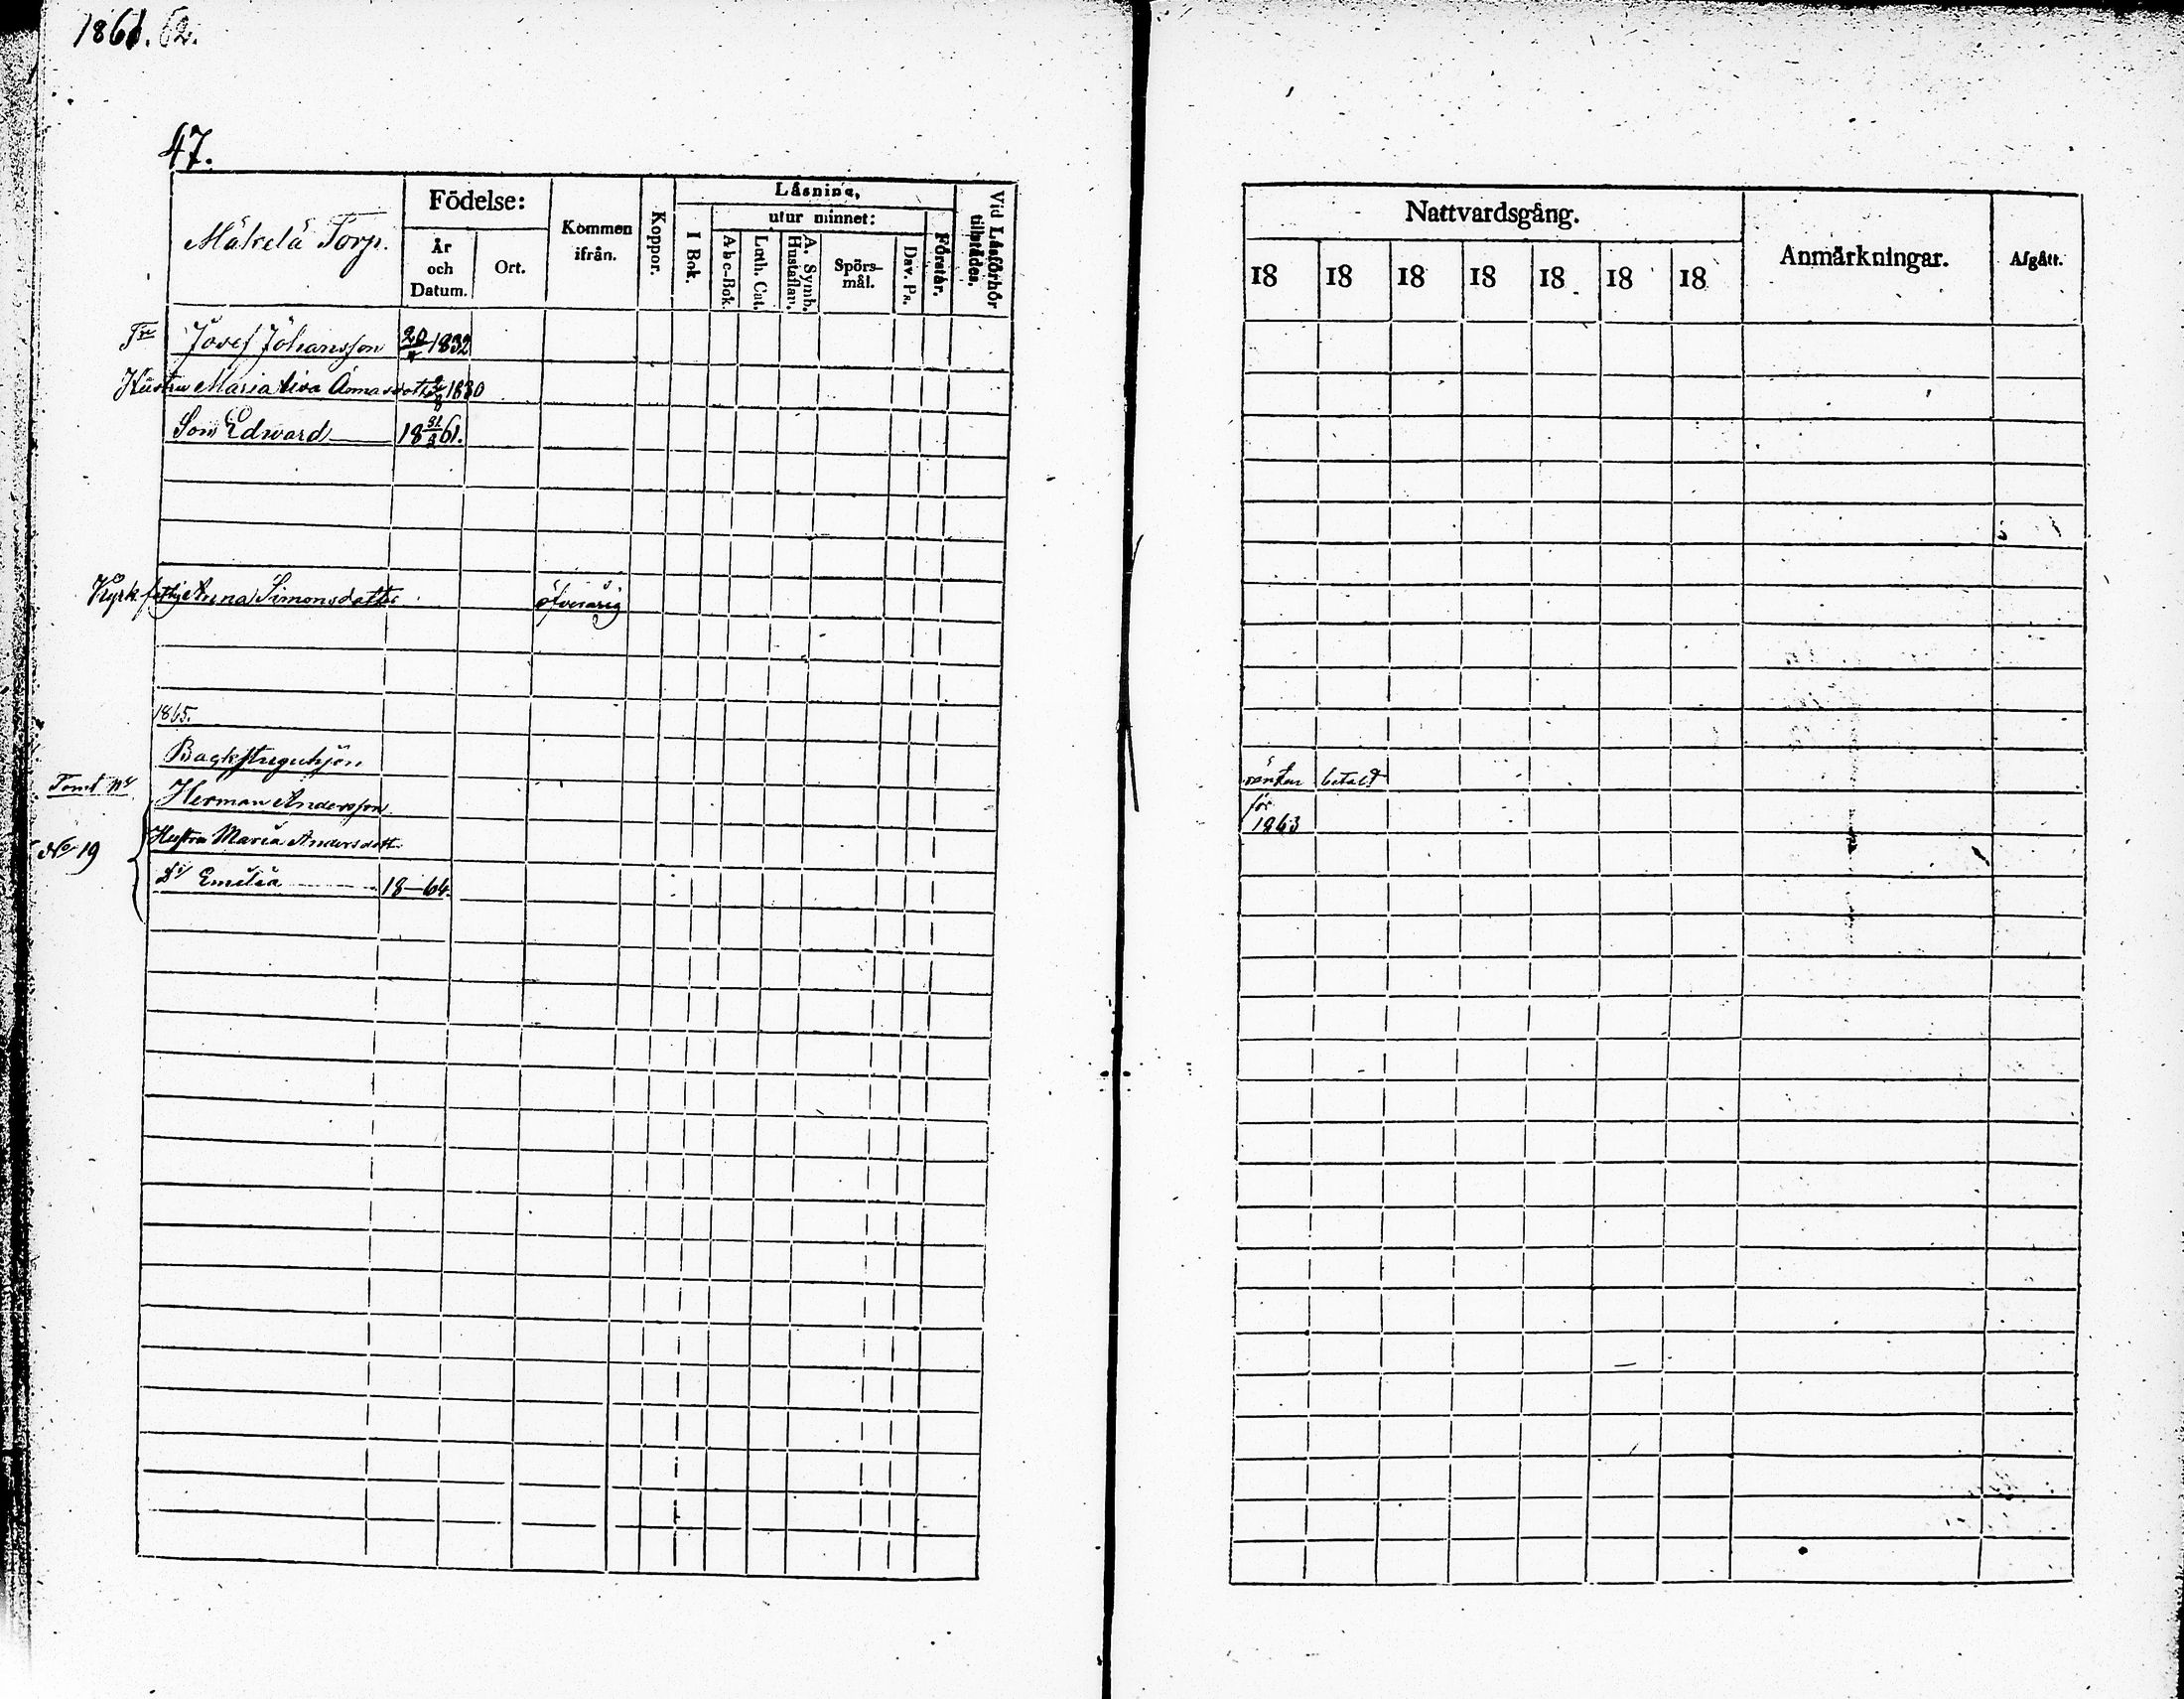 1861.62.
47.
Mäkelä Torp.
Födelse:
År och Datum.
Ort.
Kommen ifrån.
Koppor.
Läsning,
I Bok.
utur minnet:
Abc-Bok.
Luth. Cat.
A. Symb. Hustaflan.
Spörs-mål.
Dav. Ps.
Förstår.
Vid Läsförhör tillstådes.
Josef Johansson 1832
Hustru Maria Annasdott 1830
Son Edward 18 61.
Anna Simonsdotter öfverårig
1865.
Tomt
Herman Andersson
No 19
Hustru Maria Andersdott
Dr Emilia 18-64.
Nattvardsgång.
18 18 18 18 18 18 18
Anmärkningar.
Afgått.
räntan betald
för
1863